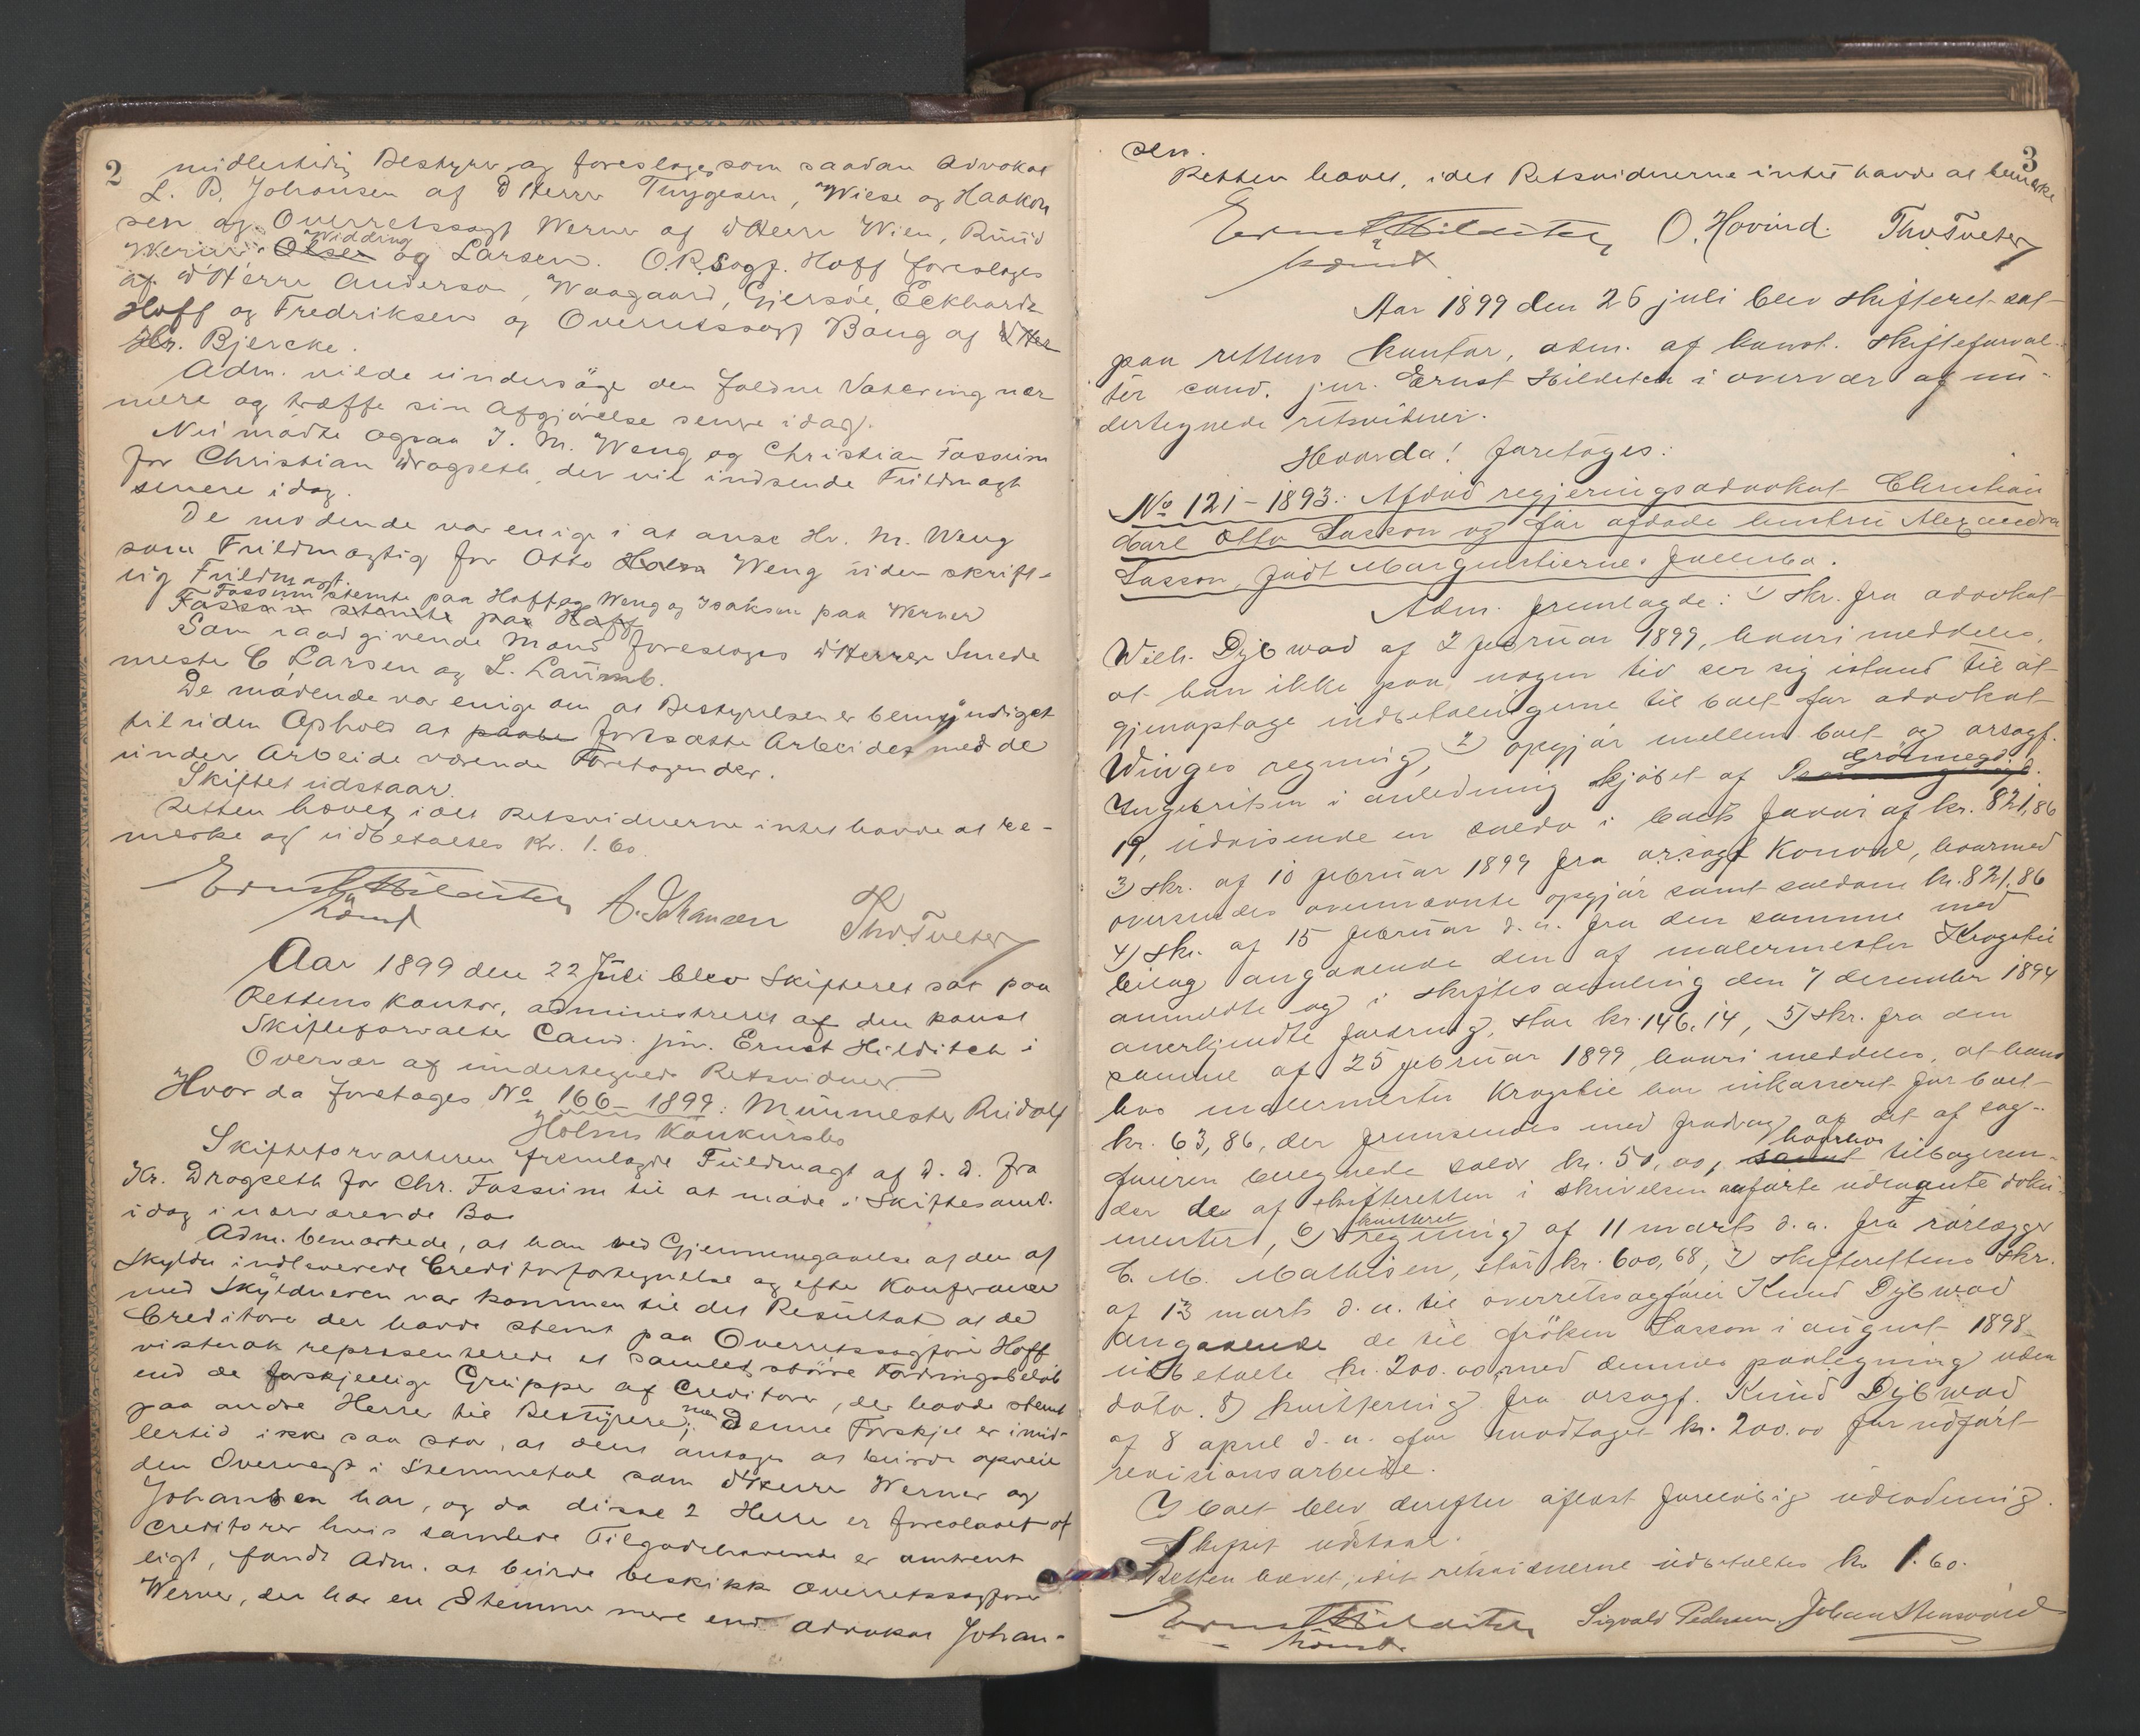 2
midlertidig Bestyrer og foresloges som saadan Advokat
L. B. Johansen af DHerrer Tryggesen, Wiese og Haakon
sen og Overretssagf Werner af DHerrer Wien, Ruud
Werner Olsen Widding og Larsen. O.R.Sagf. Hoff foresloges
af D'Herre Anderson, Waagaard, Gjersøe, Eckhardt
Hoff og Fredriksen og Overretssagf Bang af DHer
Hr. Bjercke.
Adm. vilde undersøge den faldne Votering nær
mere og træffe sin Afgjørelse senere idag.
Nu mødte ogsaa J. M. Weng og Christian Fossum
for Christian Dragseth, der vil indsende Fuldmagt
senere idag.
De mødende var enige i at anse Hr. M. Weng
som Fuldmægtig for Otto Holm Weng uden skrift-
lig Fuldmagt.
Fossum stemte paa Hoff og Weng og Isaksen paa Werner
Fossum stemte paa Hoff
Som raadgivende Mænd foresloges D'Herrer Smede
mester C Larsen og L. Laumb.
De mødende var enige om at Bestyrelsen er bemyndiget
til uden Ophold at paabe fortsætte Arbeidet med de
under Arbeide værende Foretagender.
Skiftet udstaar.
Retten hævet, idet Retsvidnerne intet havde at be-
mærke og udbetaltes Kr. 1.60.
Ernst Hilditch A. Johansen Thv. Tveter
konst
Aar 1899 den 22 Juli blev Skifteret sat paa
Rettens Kontor, administreret af den konst
Skifteforvalter Cand. jur. Ernst Hilditch i
Overvær af undertegnede Retsvidner.
Hvor da foretages No 166-1899: Murmester Rudolf
Holms Konkursbo
Skifteforvalteren fremlagde Fuldmagt af d. d. fra
Kr. Dragseth for Chr. Fossum til at møde i Skiftesaml.
idag i nærværende Bo
Adm. bemærkede, at han ved Gjennemgaaelse af den af
Skyldn indleverede Creditorfortegnelse og efter Konferance
med Skyldneren var kommen til det Resultat at de
Creditorer der havde stemt paa Overretssagfører Hoff
vistnok repræsenterede et samlet større Fordringsbeløb
end de forskjellige Grupper af Creditorer, der havde stemt
paa andre Herrer til Bestyrere; men Denne Forskjel er imid-
lertid ikke saa stor, at dens antages at burde opveie
den Overvegt i Stemmetal som d'Herrer Werner og
Johansen har, og da disse 2 Herrer er foreslaaet af
Creditorer hvis samlede Tilgodehavende er omtrent
ligt, fandt Adm. at burde beskikke Overretssagfører
Werner, der har en Stemme mere end Advokat Johan-
3
sen.
Retten hævet, idet Retsvidnerne intet havde at bemærke
Ernst Hilditch O. Hovind. Thv. Tveter
konst
Aar 1899 den 26 juli blev skifteret sat
paa rettens kontor, adm. af konst. skifteforval-
ter cand. jur. Ernst Hilditch i overvær af un-
dertegnede retsvidner.
Hvorda! foretoges:
No 121-1893: Afdød regjeringsadvokat Christian
Carl Otto Sasson og før afdøde hustru Alexandra
Sasson, født Morgenstiernes fællesbo.
Adm. fremlagde: 1) skr. fra advokat
Wilh. Dybwad af 2 februar 1899, hvori meddeles,
at han ikke paa nogen tid ser sig istand til at
gjenoptage indbetalingerne til boet for advokat
Winges regning, 2) opgjør mellem boet og orsagf.
Ingebritsen i anledning kjøbet af Grønnegd.
19, udvisende en saldo i boets favør af kr. 821,86
3) skr. af 10 februar 1899 fra orsagf Konow, hvormed
oversendes ovennævnte opgjør samt saldoen kr. 821,86
4) skr. af 15 februar d. a. fra den samme med
bilag angaaende den af malermester Krogstie
anmeldte og i skiftesamling den 7 december 1894
anerkjendte fordring, stor kr. 146,14, 5) skr. fra den
samme af 25 februar 1899, hvori meddeles, at han
hos malermester Krogstie har inkasseret for boet
kr. 63,86, der fremsendes med fradrag af det af sag-
føreren beregnede salær kr. 50,00, samt hvorhos tilbagesen-
der de af skifteretten i skrivelsen anførte udlaante doku-
menter, 6) kvitteret regning af 11 marts d. a. fra rørlægger
C. M. Mathisen, stor kr. 600,68, 7) skifterettens skr.
af 13 marts d. a. til overretssagfører Knud Dybwad
angaaende de til frøken Sasson i august 1898
udbetalte kr. 200.00 med dennes paategning uden
dato. 8) kvittering fra orsagf. Knud Dybwad
af 8 april d. a. for modtaget kr. 200.00 for udført
revisionsarbeide.
I boet blev derefter aflæst foreløbig udlodning.
Skiftet udstaar.
Retten hævet, idet retsvidnerne udbetaltes kr 1.60.
Ernst Hilditch Sigvald Pedersen Johan Stensvold
konst.